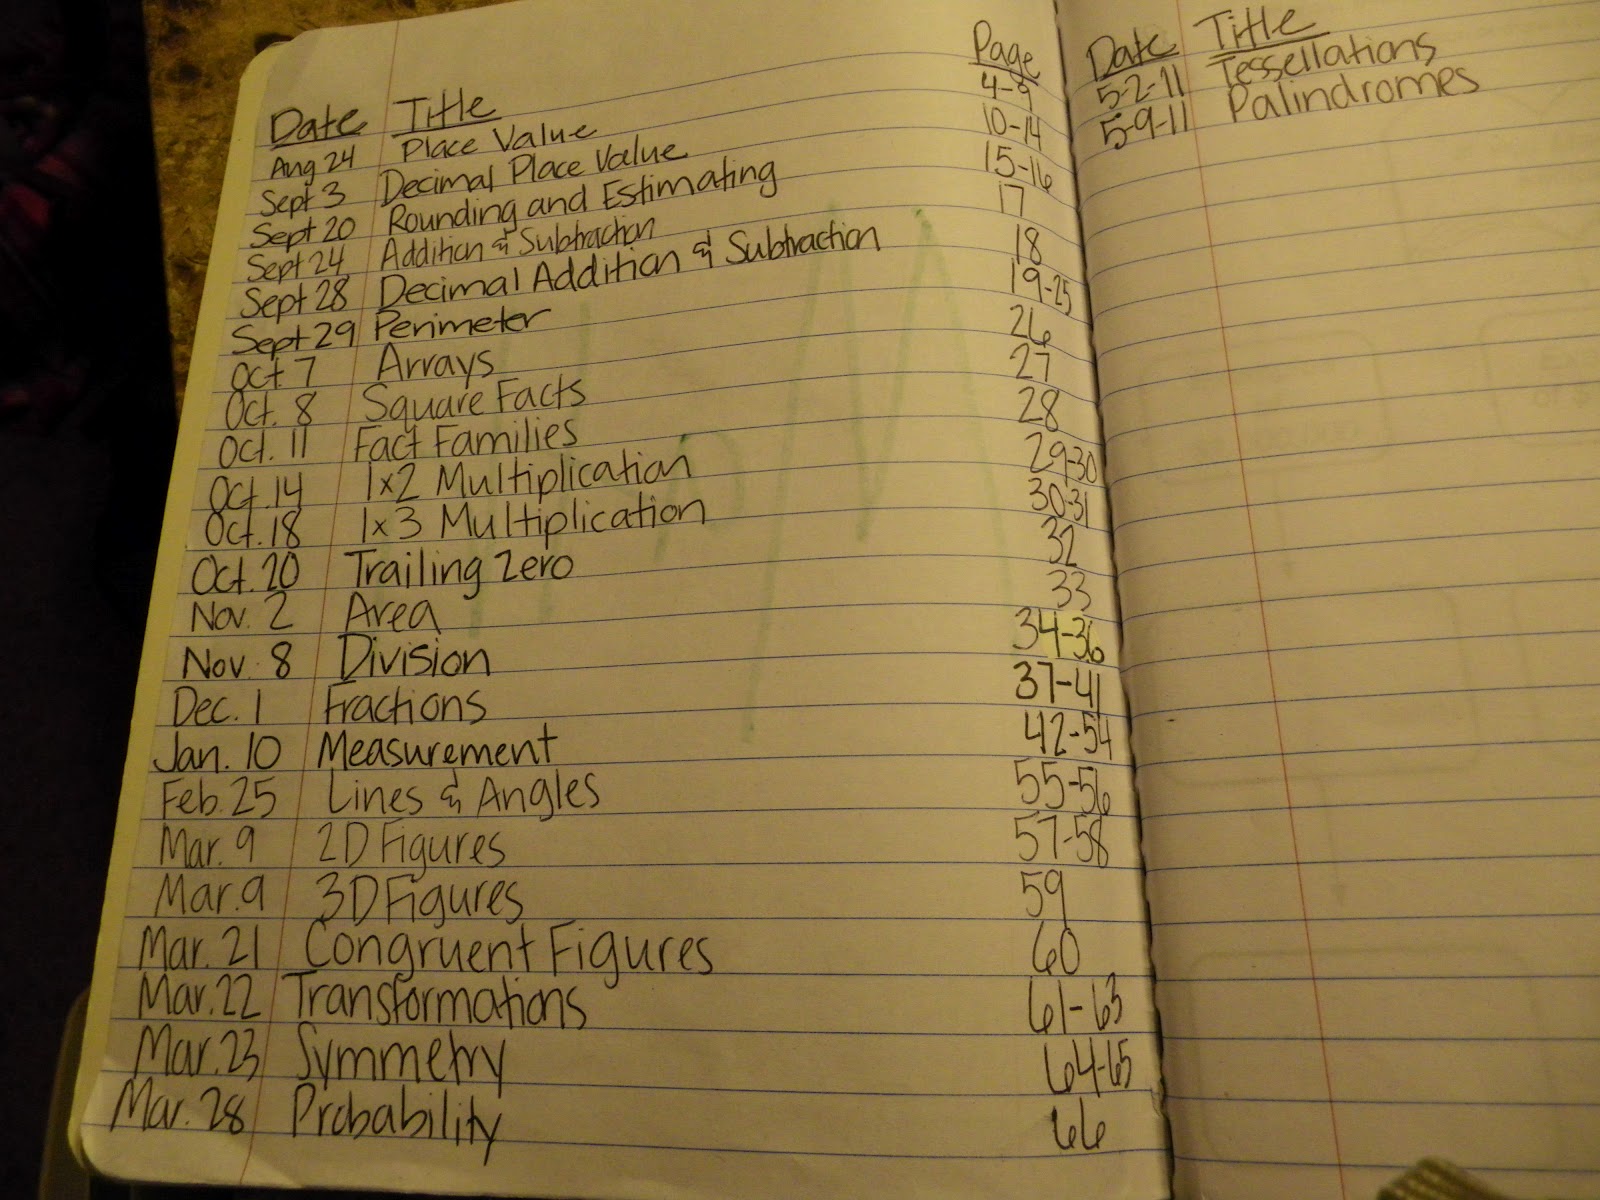 Date Title Page
Aug 24 Place Value 4-9
Sept 3 Decimal Place Value 10-14
Sept 20 Rounding and Estimating 15-16
Sept 24 Addition & Subtraction 17
Sept 28 Decimal Addition & Subtraction 18
Sept 29 Perimeter 19-25
Oct 7 Arrays 26
Oct. 8 Square Facts 27
Oct. 11 Fact Families 28
Oct. 14 1x2 Multiplication 29-30
Oct. 18 1x3 Multiplication 30-31
Oct. 20 Trailing Zero 32
Nov. 2 Area 33
Nov. 8 Division 34-36
Dec. 1 Fractions 37-41
Jan. 10 Measurement 42-54
Feb. 25 Lines & Angles 55-56
Mar. 9 2D Figures 57-58
Mar. 9 3D Figures 59
Mar. 21 Congruent Figures 60
Mar. 22 Transformations 61-63
Mar. 23 Symmetry 64-65
Mar. 28 Probability 66
Date Title
5-2-11 Tessellations
5-9-11 Palindromes